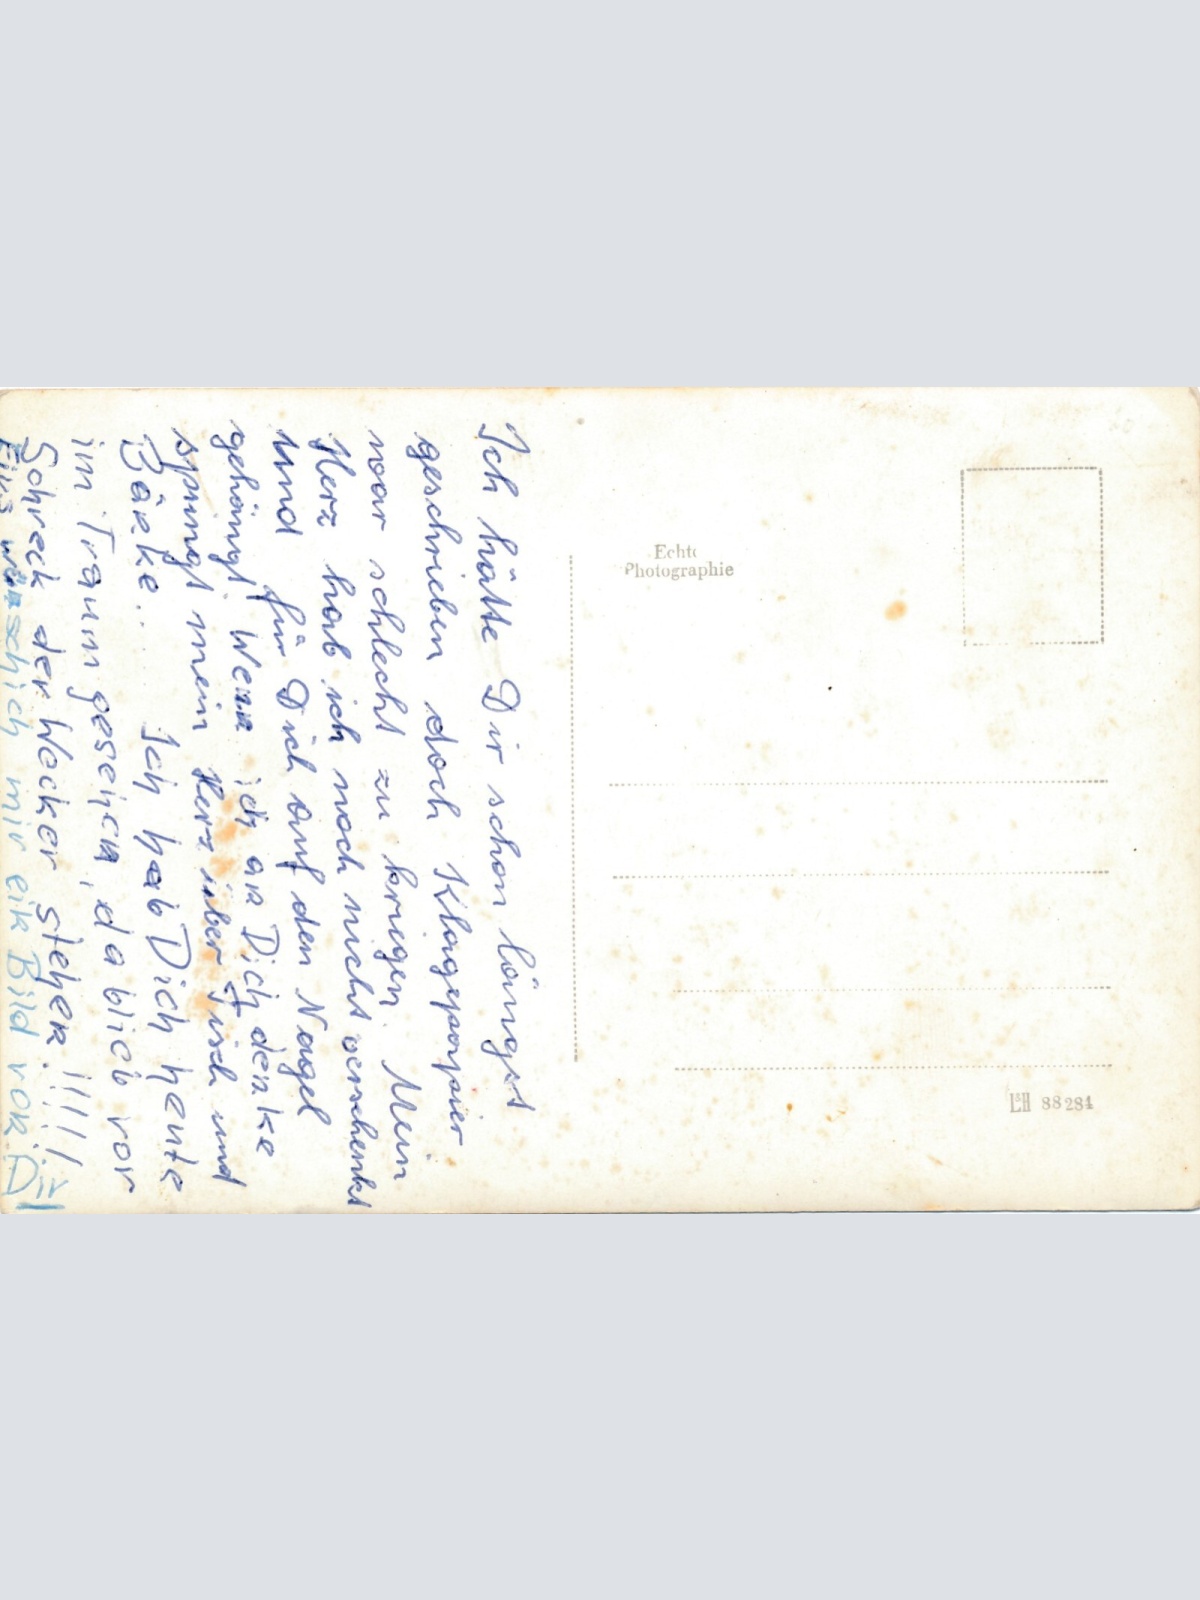 Ich hätte Dir schon längst
geschrieben doch Klagepapier
war schlecht zu kriegen. Mein
Herz hab ich noch nicht verschenkt
und für Dich auf den Nagel
gehängt Wenn ich an Dich denke
springt mein Herz über Tisch und
Bänke... Ich hab Dich heute
im Traum gesehen, da blieb vor
Schreck der Wecker stehen!!!!!
Eins wünsch ich mir ein Bild von
Echte
Photographie
L&H 88284